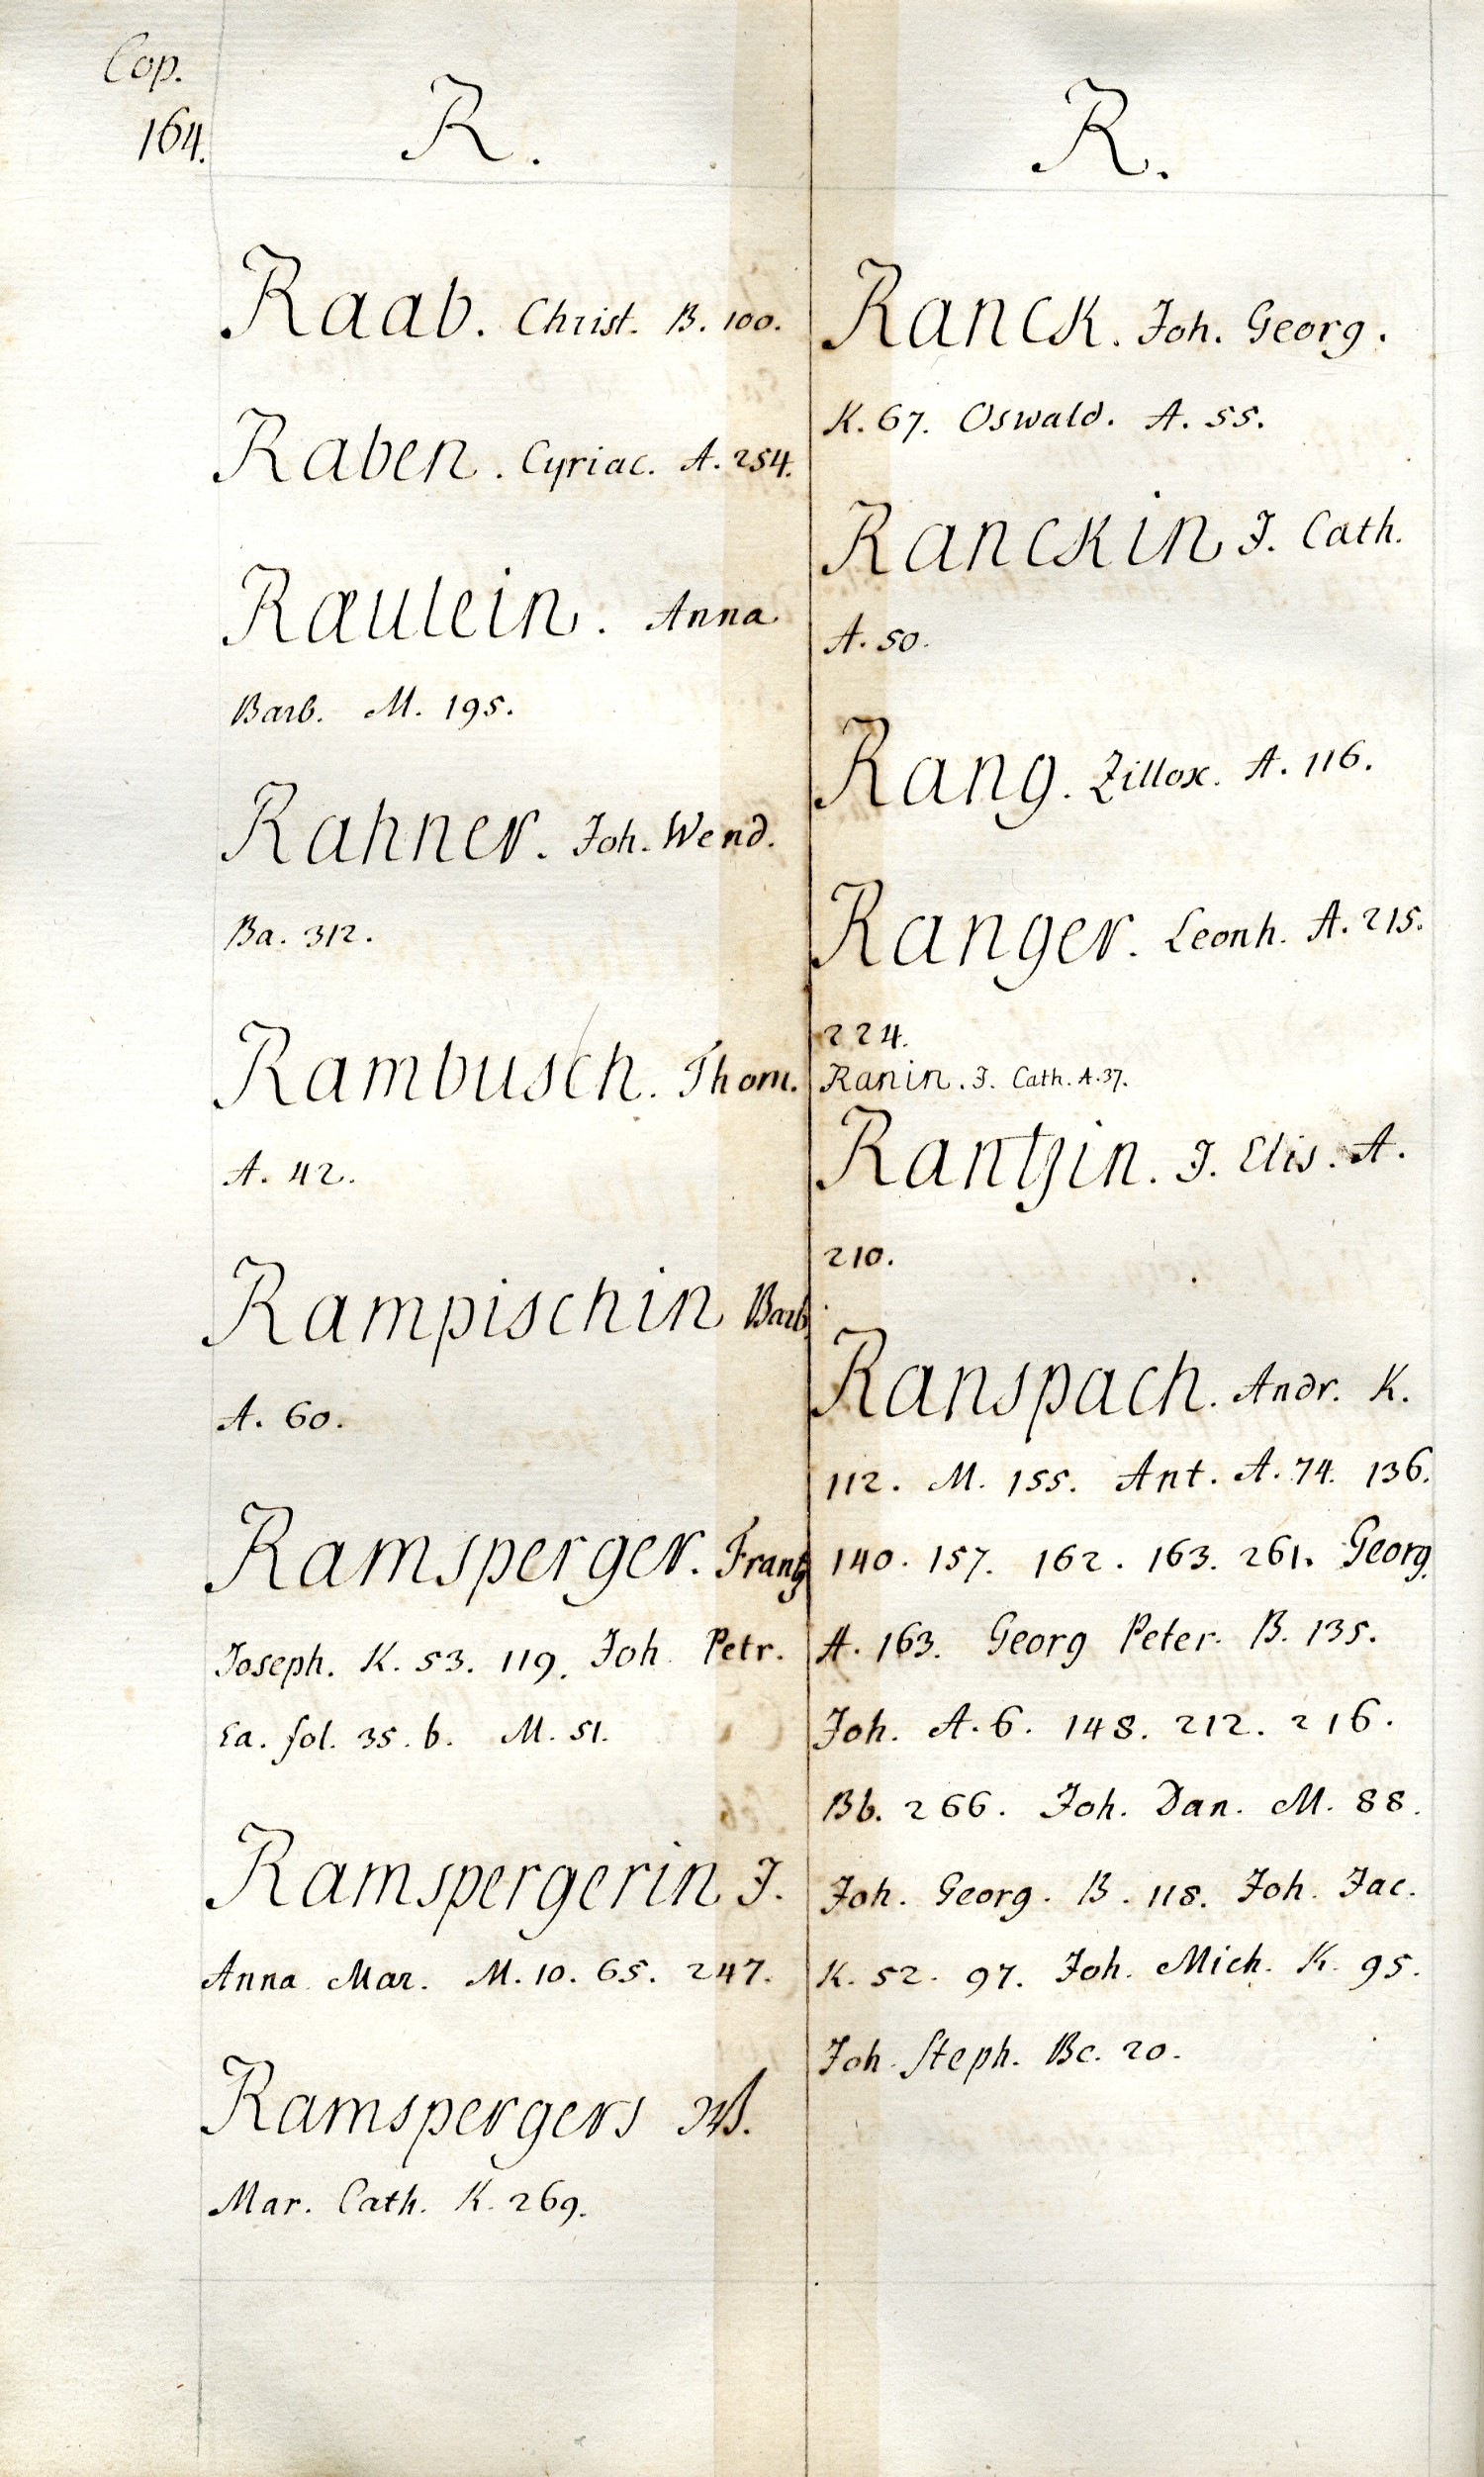 Cop.
164.
R.
Raab. Christ. B. 100.
Raben. Cyriac. A. 254.
Raulein. Anna
Barb. M. 195.
Rahner. Joh. Wend.
Ba. 312.
Rambusch. Thom.
A. 42.
Rampischin Barb.
A. 60.
Ramsperger. Frantz
Joseph. K. 53. 119. Joh. Petr.
Ea. fol. 35. b. M. 51.
Ramspergerin J.
Anna Mar. M. 10. 65. 247.
Ramspergers
Mar. Cath. K. 269.
R.
Ranck. Joh. Georg.
K. 67. Oswald. A. 55.
Ranckin J. Cath.
A. 50.
Rang. Zillox. A. 116.
Ranger. Leonh. A. 215.
224.
Ranin. J. Cath. A. 37.
Rantzin. J. Elis. A.
210.
Ranspach. Andr. K.
112. M. 155. Ant. A. 74. 136.
140. 157. 162. 163. 261. Georg.
A. 163. Georg Peter. B. 135.
Joh. A. 6. 148. 212. 216.
Bb. 266. Joh. Dan. M. 88.
Joh. Georg. B. 118. Joh. Jac.
K. 52. 97. Joh. Mich. K. 95.
Joh. Steph. Bc. 20.